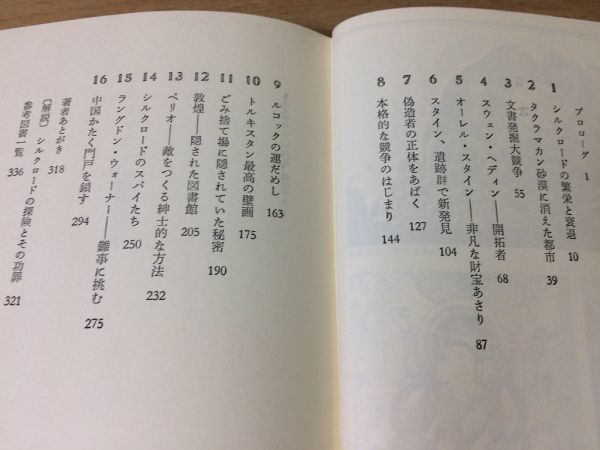 プロローグ 1
1 シルクロードの繁栄と衰退 10
2 タクラマカン砂漠に消えた都市 39
3 文書発掘大競争 55
4 スウェン・ヘディン——開拓者 68
5 オーレル・スタイン——非凡な財宝あさり 87
6 スタイン、遺跡群で新発見 104
7 偽造者の正体をあばく 127
8 本格的な競争のはじまり 144
9 ルコックの運だめし 163
10 トルキスタン最高の壁画 175
11 ごみ捨て場に隠されていた秘密 190
12 敦煌——隠された図書館 205
13 ペリオ——敵をつくる紳士的な方法
14 シルクロードのスパイたち 232
15 ラングドン・ウォーナー——難事に挑む 250
16 中国かたく門戸を鎖す 275
294
著者あとがき 318
〔解説〕シルクロードの探険とその功罪 321
参考図書一覧 336